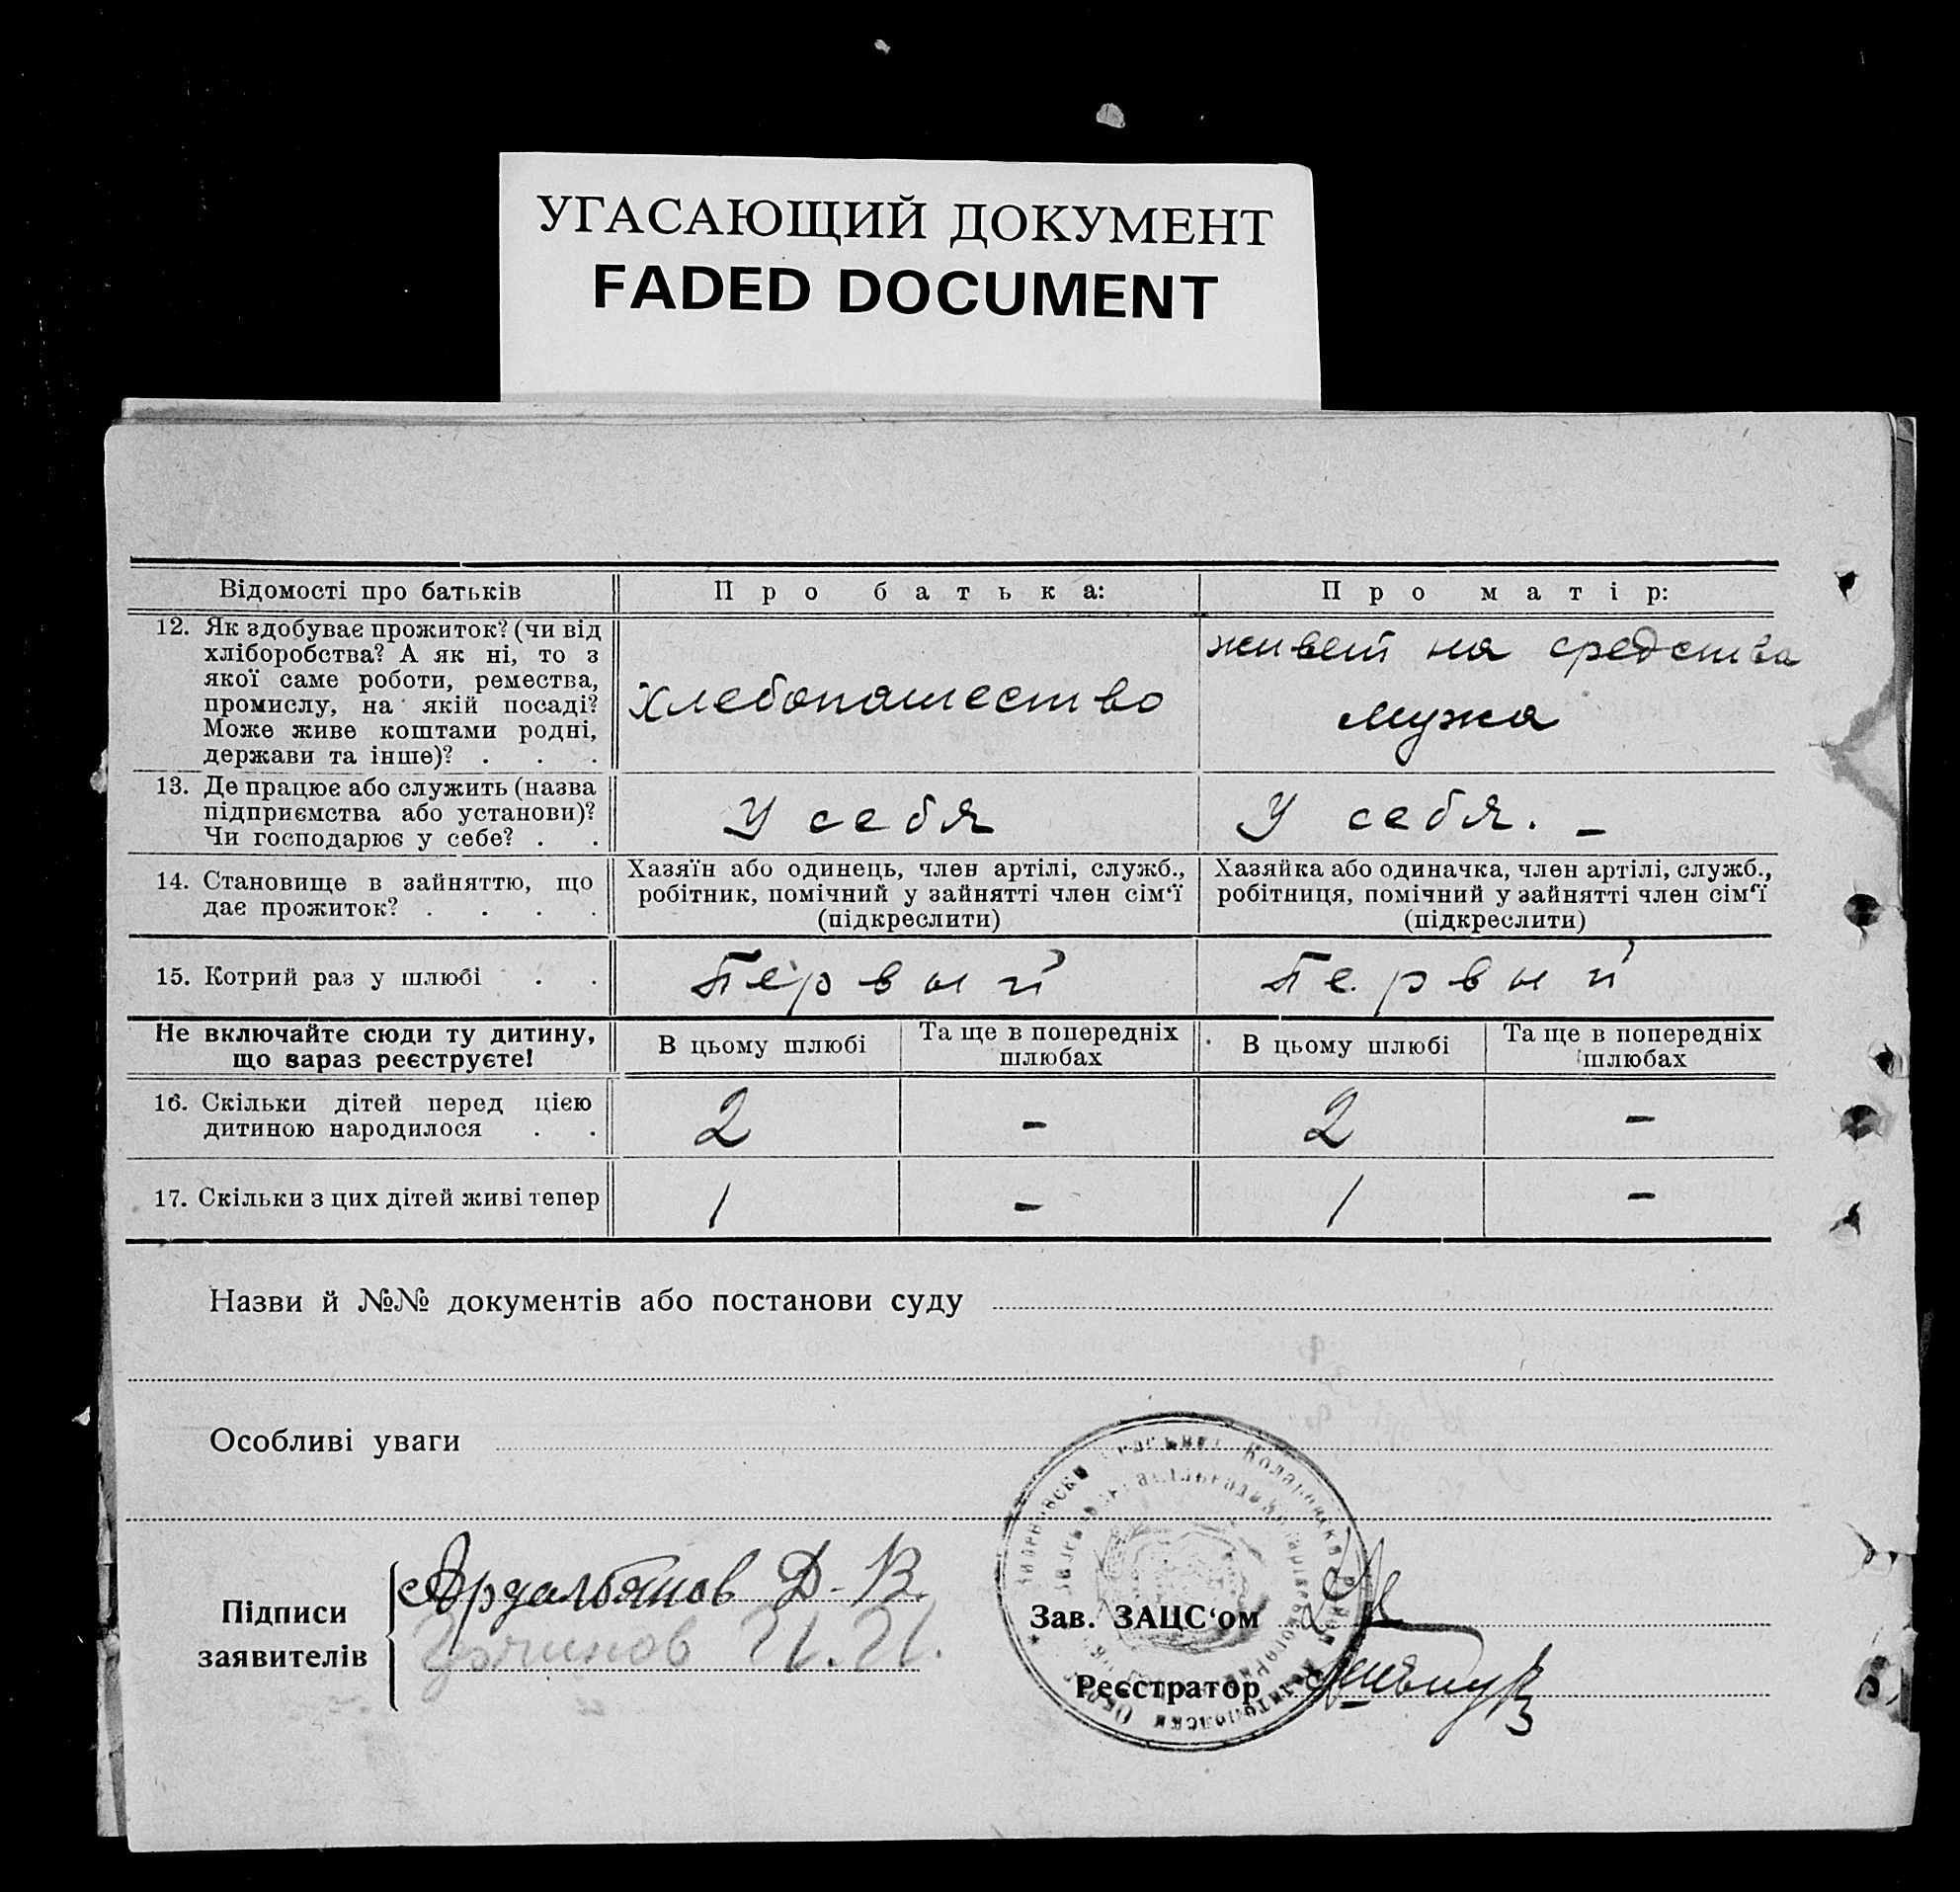 УГАСАЮЩИЙ ДОКУМЕНТ
FADED DOCUMENT
Відомості про батьків
Про батька:
Про матір:
12. Як здобуває прожиток? (чи від
хліборобства? А як ні, то з
якої саме роботи, ремества,
промислу, на якій посаді?
Може живе коштами родні,
держави та інше)? . . .
Хлебопашество
живет на средства
мужа
13. Де працює або служить (назва
підприємства або установи)?
Чи господарює у себе? . .
У себя
У себя. –
14. Становище в зайняттю, що
дає прожиток? . . . .
Хазяїн або одинець, член артілі, служб.,
робітник, помічний у зайнятті член сім'ї
(підкреслити)
Хазяйка або одиначка, член артілі, служб.,
робітниця, помічний у зайнятті член сім'ї
(підкреслити)
15. Котрий раз у шлюбі . .
Первый
Первый
Не включайте сюди ту дитину,
що зараз реєструєте!
В цьому шлюбі
Та ще в попередніх
шлюбах
В цьому шлюбі
Та ще в попередніх
шлюбах
16. Скільки дітей перед цією
дитиною народилося . .
2
–
2
–
17. Скільки з цих дітей живі тепер
1
–
1
–
Назви й №№ документів або постанови суду
Особливі уваги
Підписи
заявителів
Д. В.
И. И.
Зав. ЗАЦС'ом
Реєстратор